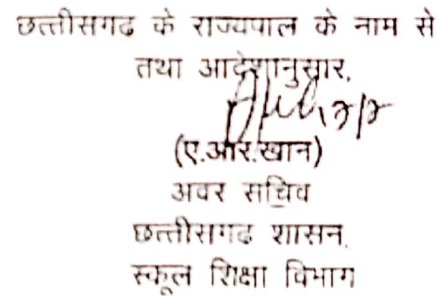 छत्तीसगढ के राज्यपाल के नाम से
तथा आदेशानुसार,
(ए.आर.खान)
अवर सचिव
छत्तीसगढ शासन,
स्कूल शिक्षा विभाग